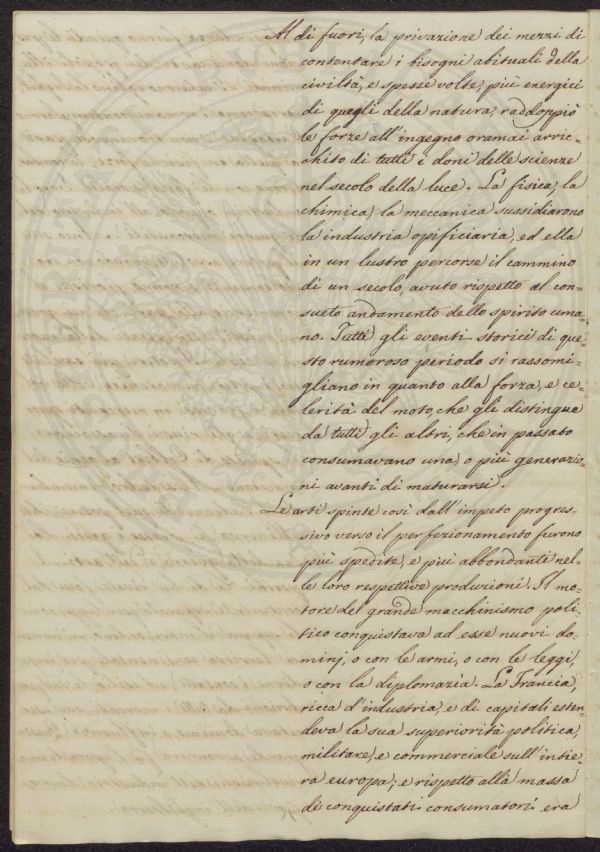 Al di fuori, la privazione dei mezzi di
contentare i bisogni abituali della
civiltà, e spesse volte, più energici
di quegli della natura, raddoppiò
le forze all'ingegno oramai arric=
chito di tutti i doni delle scienze
nel secolo della luce. La fisica, la
chimica, la meccanica sussidiarono
la industria opificiaria, ed ella
in un lustro percorse il cammino
di un secolo, avuto rispetto al con=
sueto andamento dello spirito uma=
no. Tutti gli eventi storici di que=
sto rumoroso periodo si rassomi=
gliano in quanto alla forza, e ce=
lerità del moto, che gli distingue
da tutti gli altri, che in passato
consumavano una, o più generazio=
ni avanti di maturarsi.
Le arti spinte così dall'impeto progres=
sivo verso il perfezionamento furono
più spedite, e più abbondanti nel=
le loro respettive produzioni. Il mo=
tore del grande macchinismo poli=
tico conquistava ad esse nuovi do=
minj, o con le armi, o con le leggi,
o con la diplomazia. La Francia,
ricca d'industria, e di capitali esten=
deva la sua superiorità politica,
militare, e commerciale sull'intie=
ra europa; e rispetto alla massa
di conquistati consumatori era